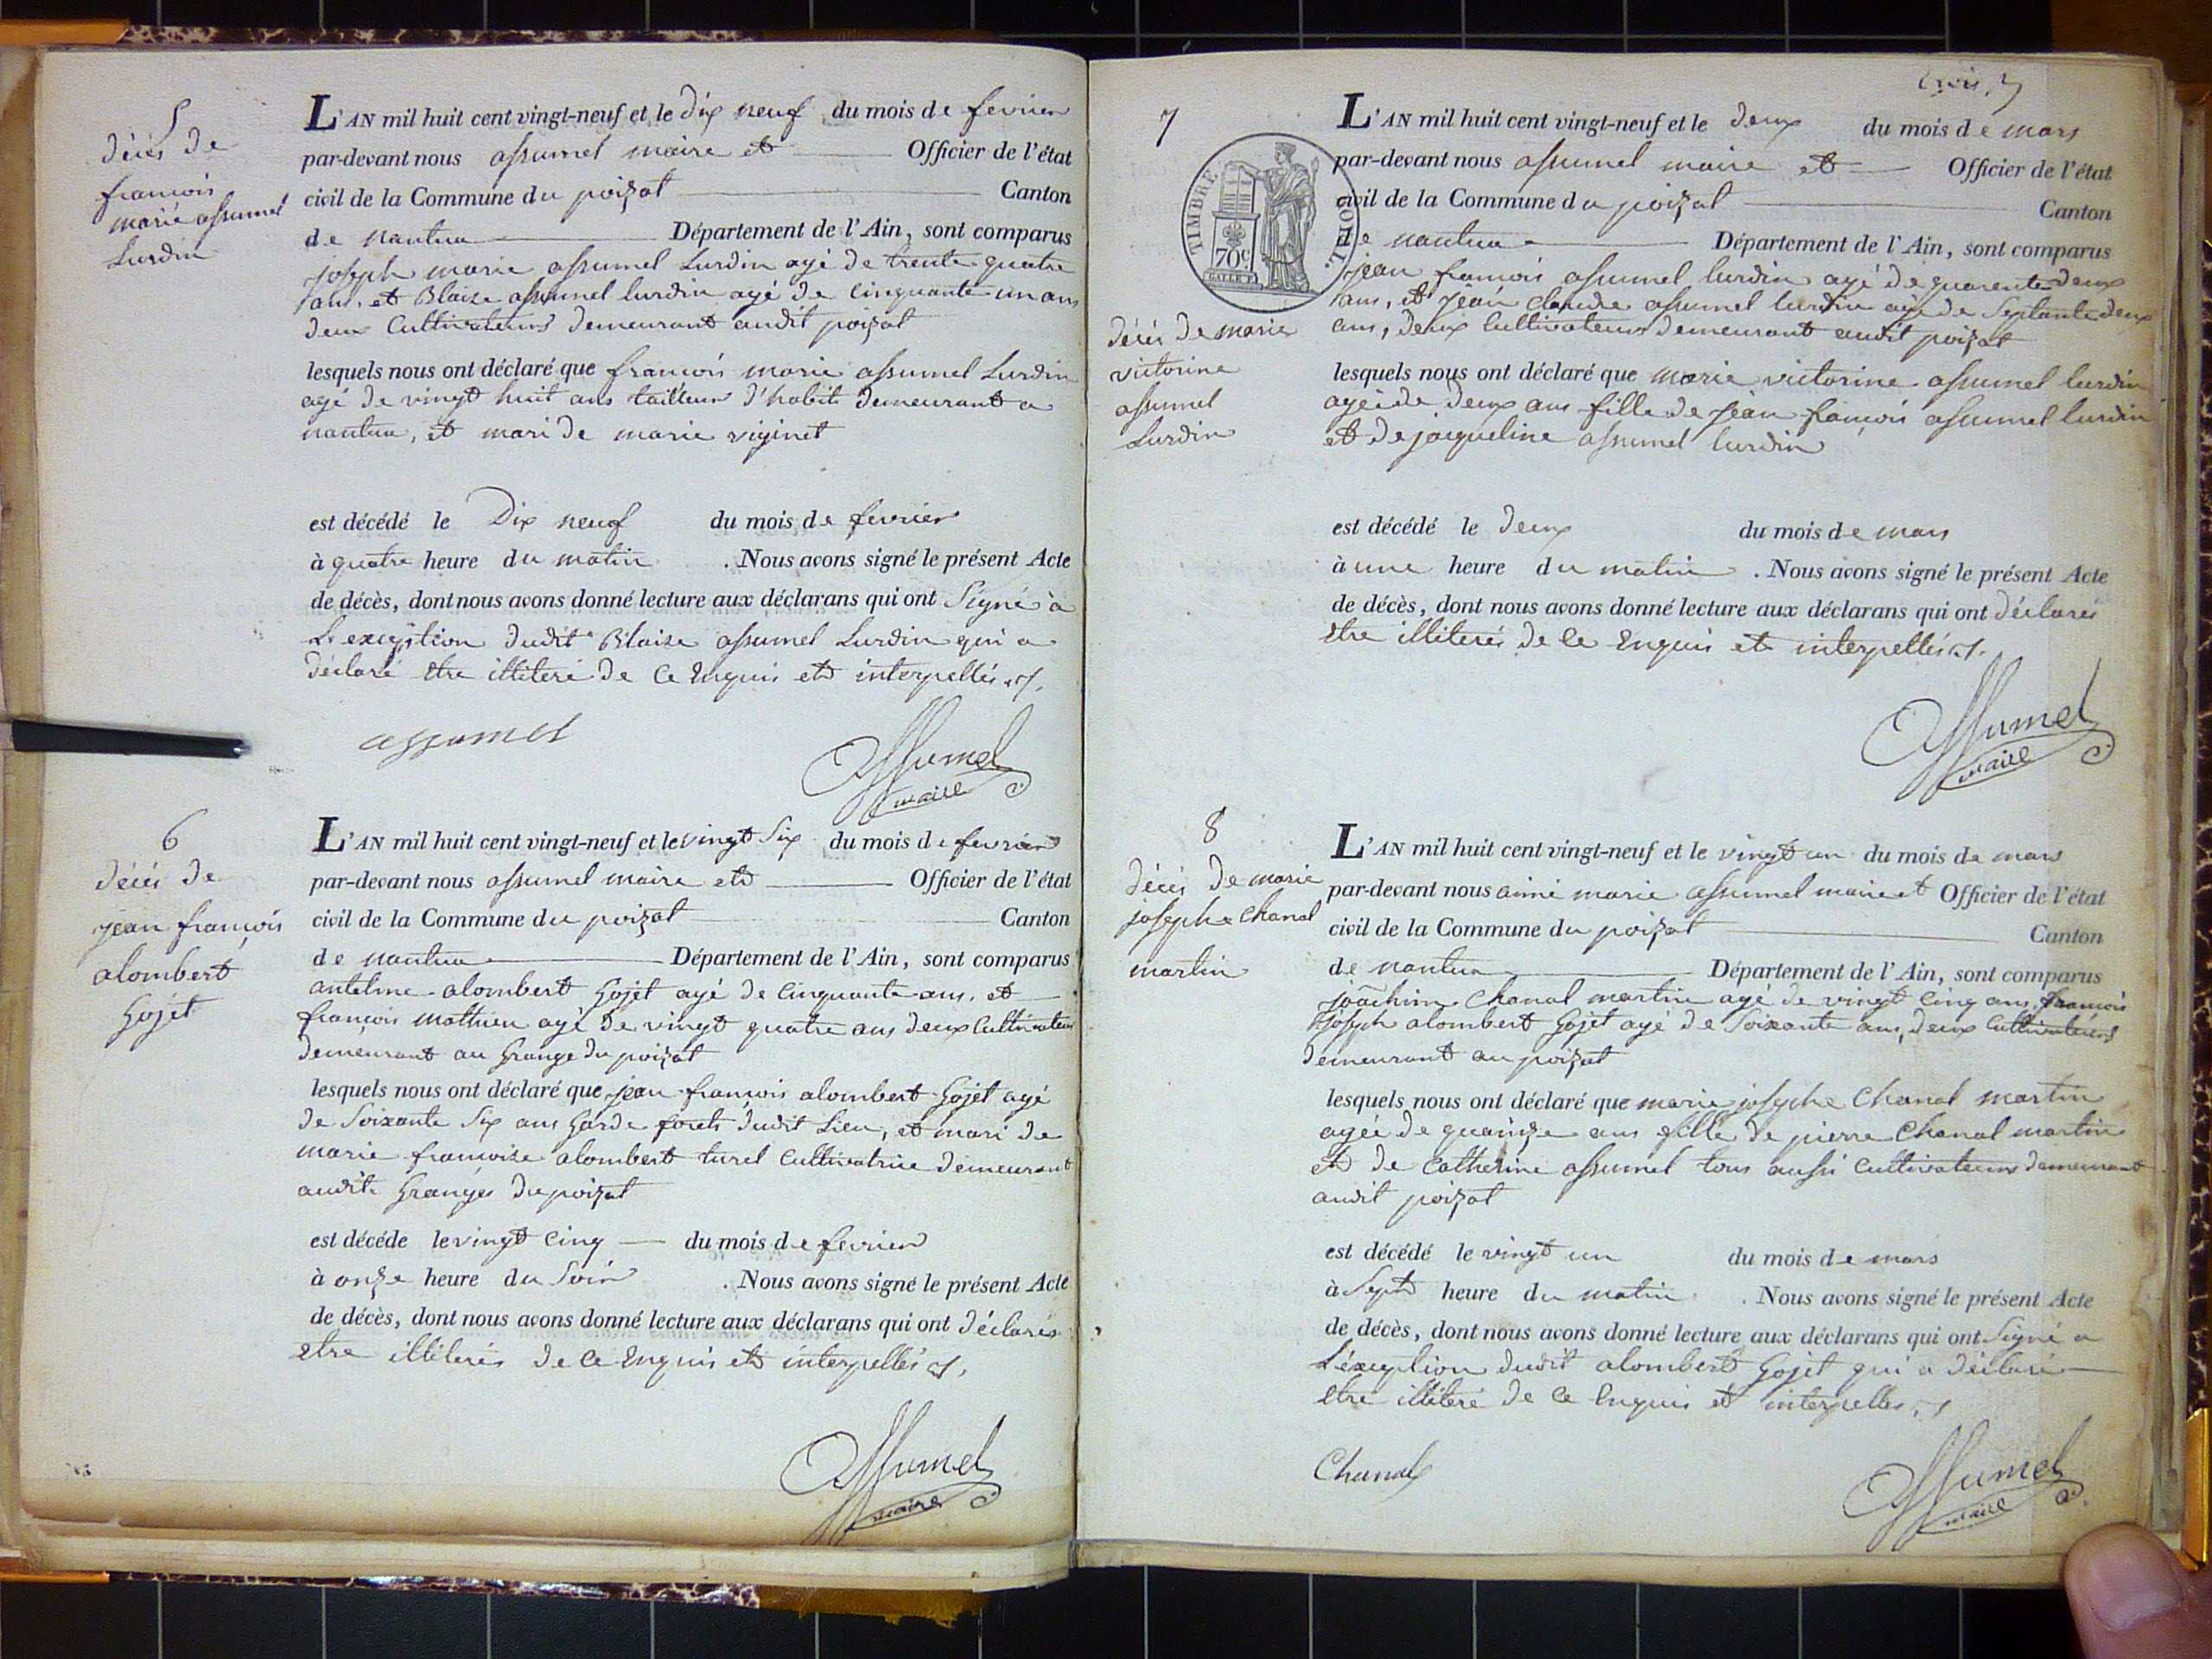 5
décés de
francois
marie assumel
Lurdin
L'AN mil huit cent vingt-neuf et le dix neuf du mois de fevrier
par-devant nous assumel maire et Officier de l'état
civil de la Commune du poizat Canton
de nantua Département de l'Ain, sont comparus
joseph marie assumel Lurdin agé de trente quatre
ans, et Blaize assumel lurdin agé de cinquante un ans
deux Cultivateurs demeurant audit poizat
lesquels nous ont déclaré que francois marie assumel Lurdin
agé de vingt huit ans tailleur d'habits demeurant a
nantua, et mari de marie viginet
est décédé le Dix neuf du mois de fevrier
à quatre heure du matin . Nous avons signé le présent Acte
de décès, dont nous avons donné lecture aux déclarans qui ont Signé à
L'exception dudit Blaize assumel Lurdin qui a
déclaré etre illiteré de ce Enquis et interpellés
assumel
Assumel
maire
6
décés de
jean françois
alombert
Gojet
L'AN mil huit cent vingt-neuf et le vingt Six du mois de fevrier
par-devant nous assumel maire et Officier de l'état
civil de la Commune du poizat Canton
de nantua Département de l'Ain, sont comparus
antelme alombert Gojet agé de Cinquante ans, et
françois mathieu agé de vingt quatre ans deux Cultivateurs
demeurant au Grange du poizat
lesquels nous ont déclaré que jean francois alombert Gojet agé
de Soixante Six ans Garde forets dudit Lieu, et mari de
marie francoise alombert turel Cultivatrice demeurant
audit Granges du poizat
est décéde le vingt Cinq du mois de fevrier
à onze heure du Soir . Nous avons signé le présent Acte
de décès, dont nous avons donné lecture aux déclarans qui ont déclarés
etre illiterés de ce Enquis et interpellés
Assumel
maire
trois 3
7
TIMBRE ROYAL
70c
décés de marie
victorine
assumel
Lurdin
L'AN mil huit cent vingt-neuf et le deux du mois de mars
par-devant nous assumel maire et Officier de l'état
civil de la Commune du poizat Canton
de nantua Département de l'Ain, sont comparus
jean francois assumel lurdin agé de quarente deux
ans, et jean claude assumel lurdin agé de Septante deux
ans, deux Cultivateurs demeurant audit poizat
lesquels nous ont déclaré que marie victorine assumel lurdin
agée de deux ans fille de jean françois assumel lurdin
et de jacqueline assumel lurdin
est décédé le deux du mois de mars
à une heure du matin . Nous avons signé le présent Acte
de décès, dont nous avons donné lecture aux déclarans qui ont déclarés
etre illiterés de ce Enquis et interpellés
Assumel
maire
8
décés de marie
josephe Chanal
martin
L'AN mil huit cent vingt-neuf et le vingt un du mois de mars
par-devant nous aimé marie assumel maire et Officier de l'état
civil de la Commune du poizat Canton
de nantua Département de l'Ain, sont comparus
joachim Chanal martin agé de vingt Cinq ans, francois
joseph alombert Gojet agé de Soixante ans, deux Cultivateurs
demeurant au poizat
lesquels nous ont déclaré que marie josephe Chanal martin
agée de quainze ans fille de pierre Chanal martin
et de Catherine assumel tous aussi Cultivateurs demeurant
audit poizat
est décédé le vingt un du mois de mars
à Sept heure du matin . Nous avons signé le présent Acte
de décès, dont nous avons donné lecture aux déclarans qui ont Signé a
L'éxception dudit alombert Gojet qui a déclaré
etre illiteré de ce Enquis et interpellés
Chanal
Assumel
maire